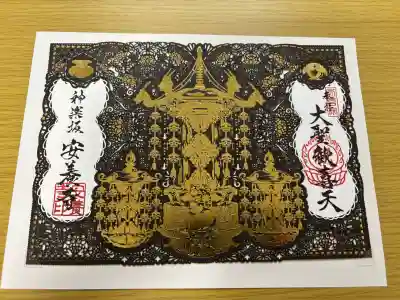 大聖歓喜天
神楽坂
安養寺